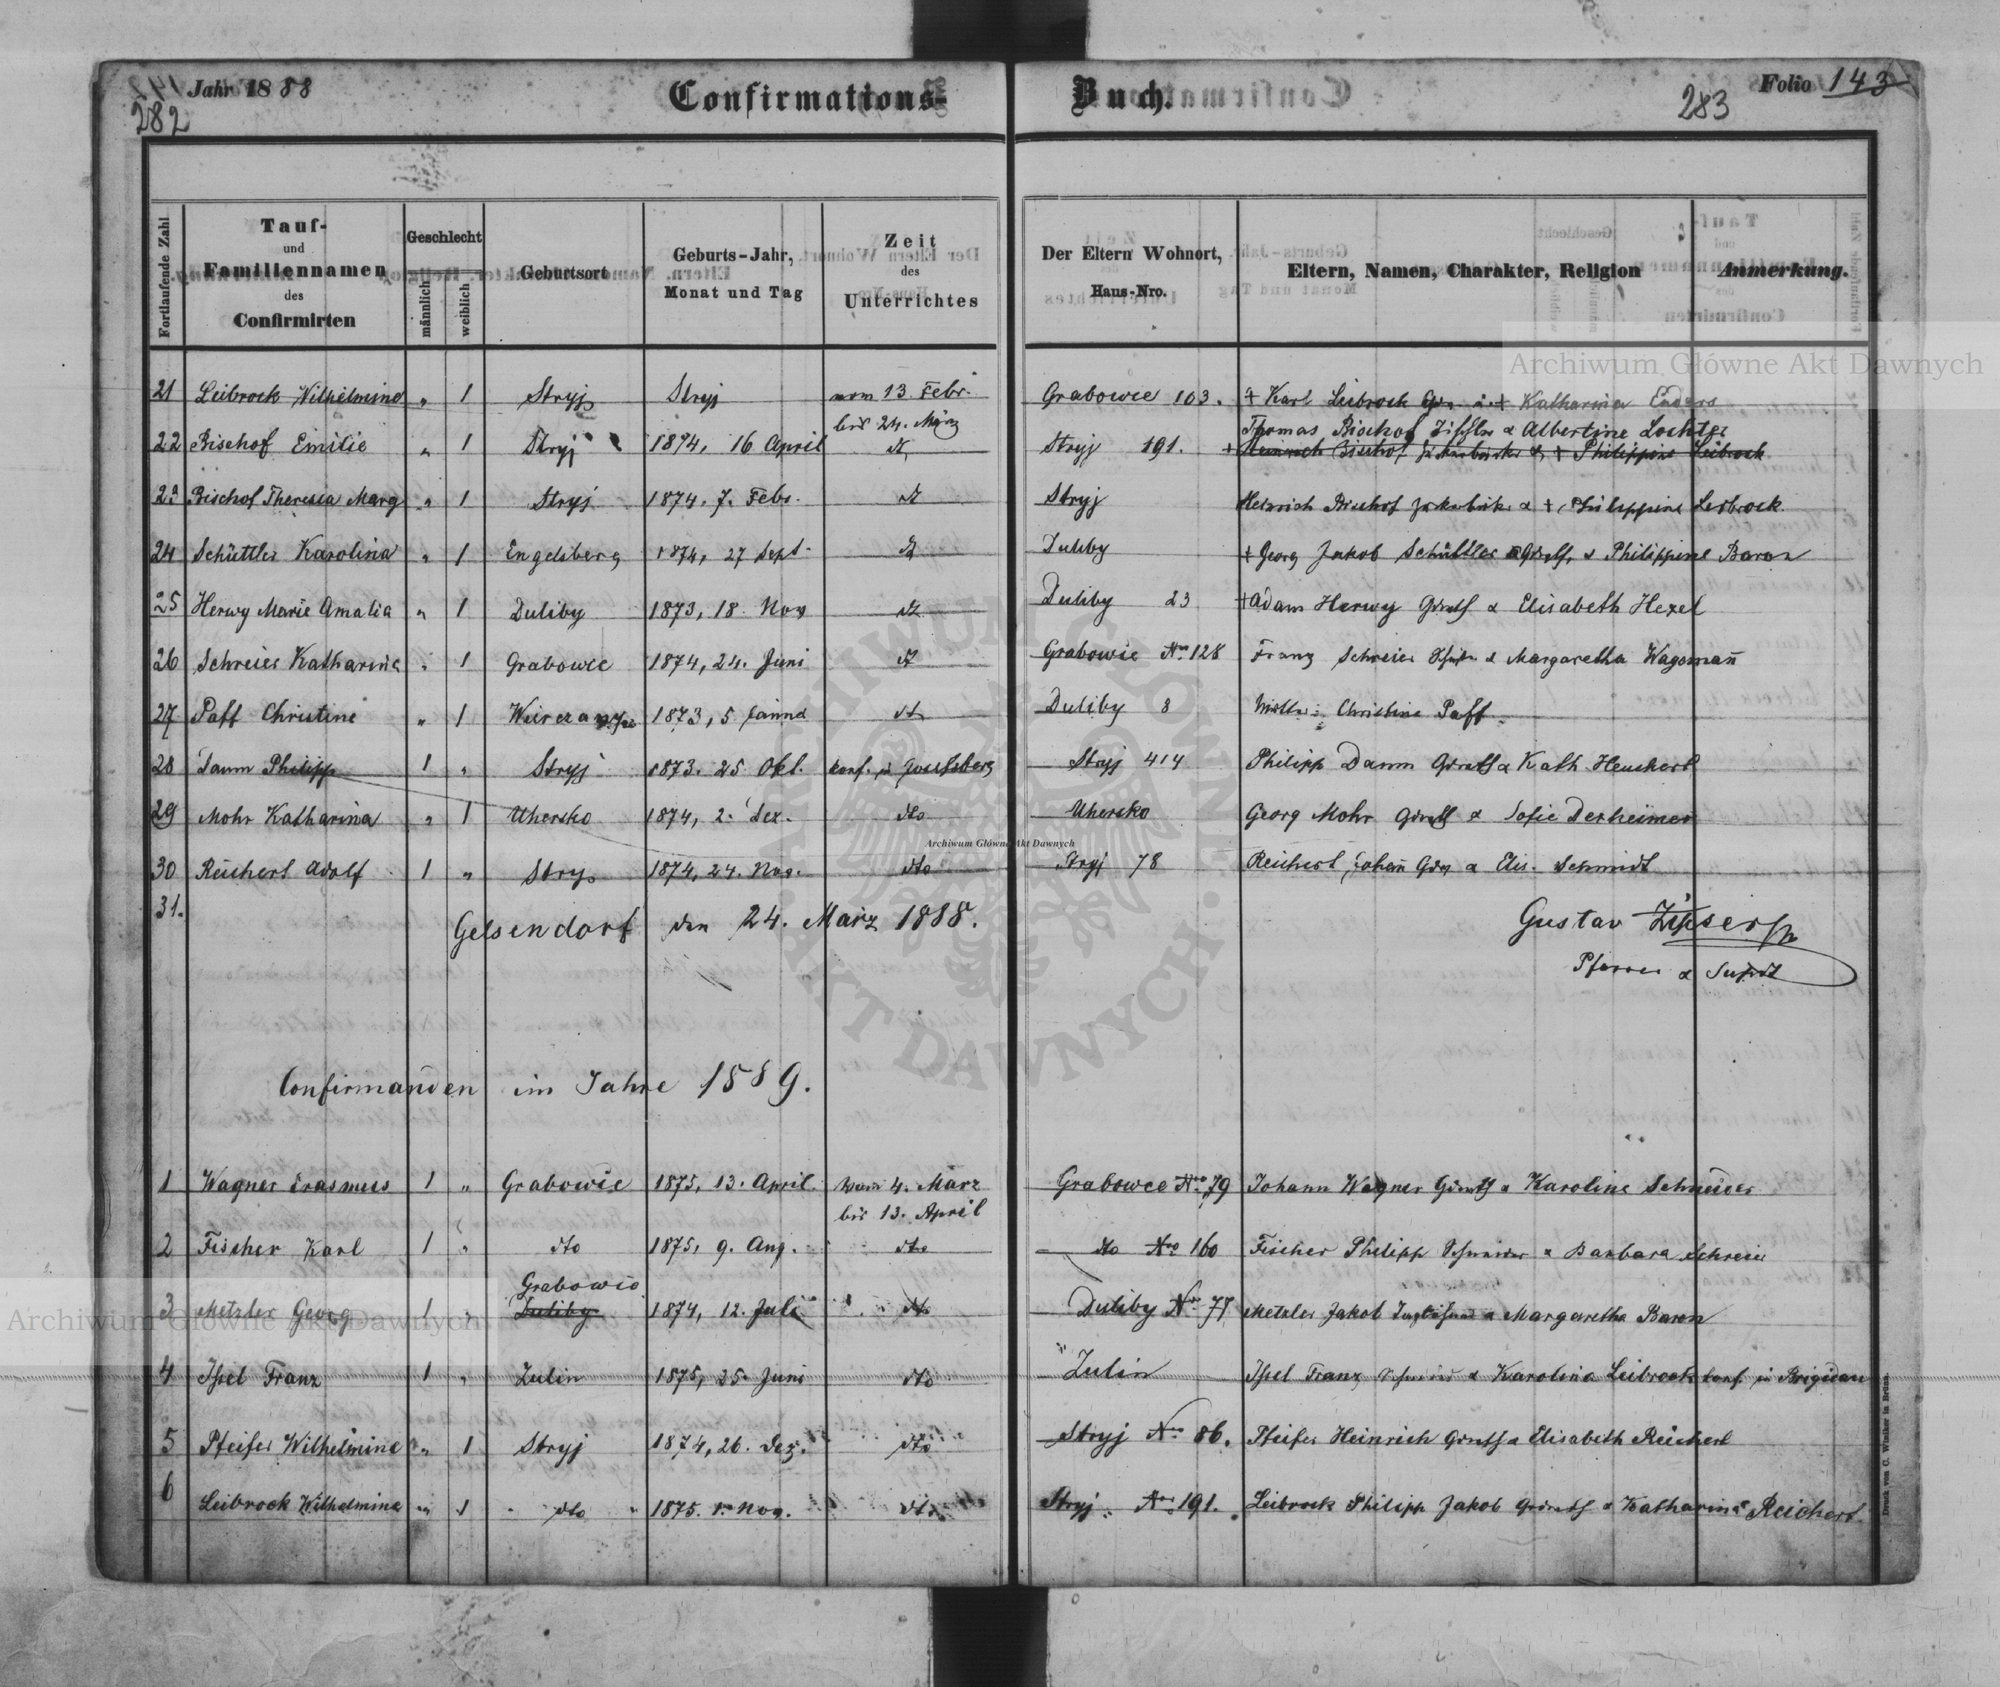 Jahr 1888
Confirmations-
Buch.
Folio 143
282
283
Fortlaufende Zahl
Tauf-
und
Familiennamen
des
Confirmirten
Geschlecht
männlich
weiblich
Geburtsort
Geburts-Jahr,
Monat und Tag
Zeit
des
Unterrichtes
Der Eltern Wohnort,
Haus-Nro.
Eltern, Namen, Charakter, Religion
Anmerkung.
21 Leibrock Wilhelmine " 1 Stryj Stryj vom 13 Febr. Grabowce 103. + Karl Leibrock & + Katharina Enders
bis 24. März
Thomas Bischof & Albertine Lochter
22 Bischof Emilie " 1 Stryj 1874, 16 April dt Stryj 191. + Heinrich Bischof & + Philippine Leibrock
23 Bischof Theresia Marg " 1 Stryj 1874, 7. Febr. dt Stryj Heinrich Bischof & + Philippine Leibrock
24 Schüttler Karolina " 1 Engelsberg 1874, 27 Sept. dt Duliby + Georg Jakob Schüttler & Philippine Baron
25 Herwy Marie Amalia " 1 Duliby 1873, 18 Nov dt Duliby 23 + Adam Herwy Grundb & Elisabeth Hexel
26 Schreier Katharina " 1 Grabowce 1874, 24. Juni dt Grabowce No 128 Franz Schreier & Margaretha Wagemañ
27 Paff Christine " 1 1873, 5 dt Duliby 8 Mutter: Christine Paff
28 Damm Philipp 1 " Stryj 1873. 25 Okt. konf. in Josefsberg Stryj 414 Philipp Damm Grundb & Kath Heuchert
29 Mohr Katharina " 1 Uhersko 1874, 2. Dez. dto Uhersko Georg Mohr Grundb & Sofie Derheimer
30 Reichert Adolf 1 " Stryj 1874, 24. Nov. dto Stryj 78 Reichert, Johañ & Elis. Schmidt
31.
Gelsendorf den 24. März 1888.
Gustav Zipser
Pfarrer & Supdt
Confirmañden im Jahre 1889.
1 Wagner Erasmus 1 " Grabowce 1875, 13. April. vom 4. März Grabowce No 79 Johann Wagner Grundb & Karoline Schneider
bis 13. April
2 Fischer Karl 1 " dto 1875, 9. Aug. dto dto No 160 Fischer Philipp & Barbara Schreier
Grabowce
3 Metzler Georg 1 " Duliby 1874, 12. Juli dto Duliby No 77 Metzler Jakob & Margaretha Baron
4 Issel Franz 1 " Zulin 1875, 25. Juni dto Zulin Issel Franz & Karolina Leibrock konf. in Brigidau
5 Pfeifer Wilhelmine " 1 Stryj 1874, 26. Dez. dto Stryj No 86. Pfeifer Heinrich Grundb & Elisabeth Reichert
6 Leibrock Wilhelmine " 1 dto 1875. 1. Nov. dto Stryj No 191. Leibrock Philipp Jakob Grundb & Katharina Reichert
Druck von C. Winiker in Brünn.
Archiwum Główne Akt Dawnych
Archiwum Główne Akt Dawnych
Archiwum Główne Akt Dawnych
ARCHIWUM GŁÓWNE AKT DAWNYCH